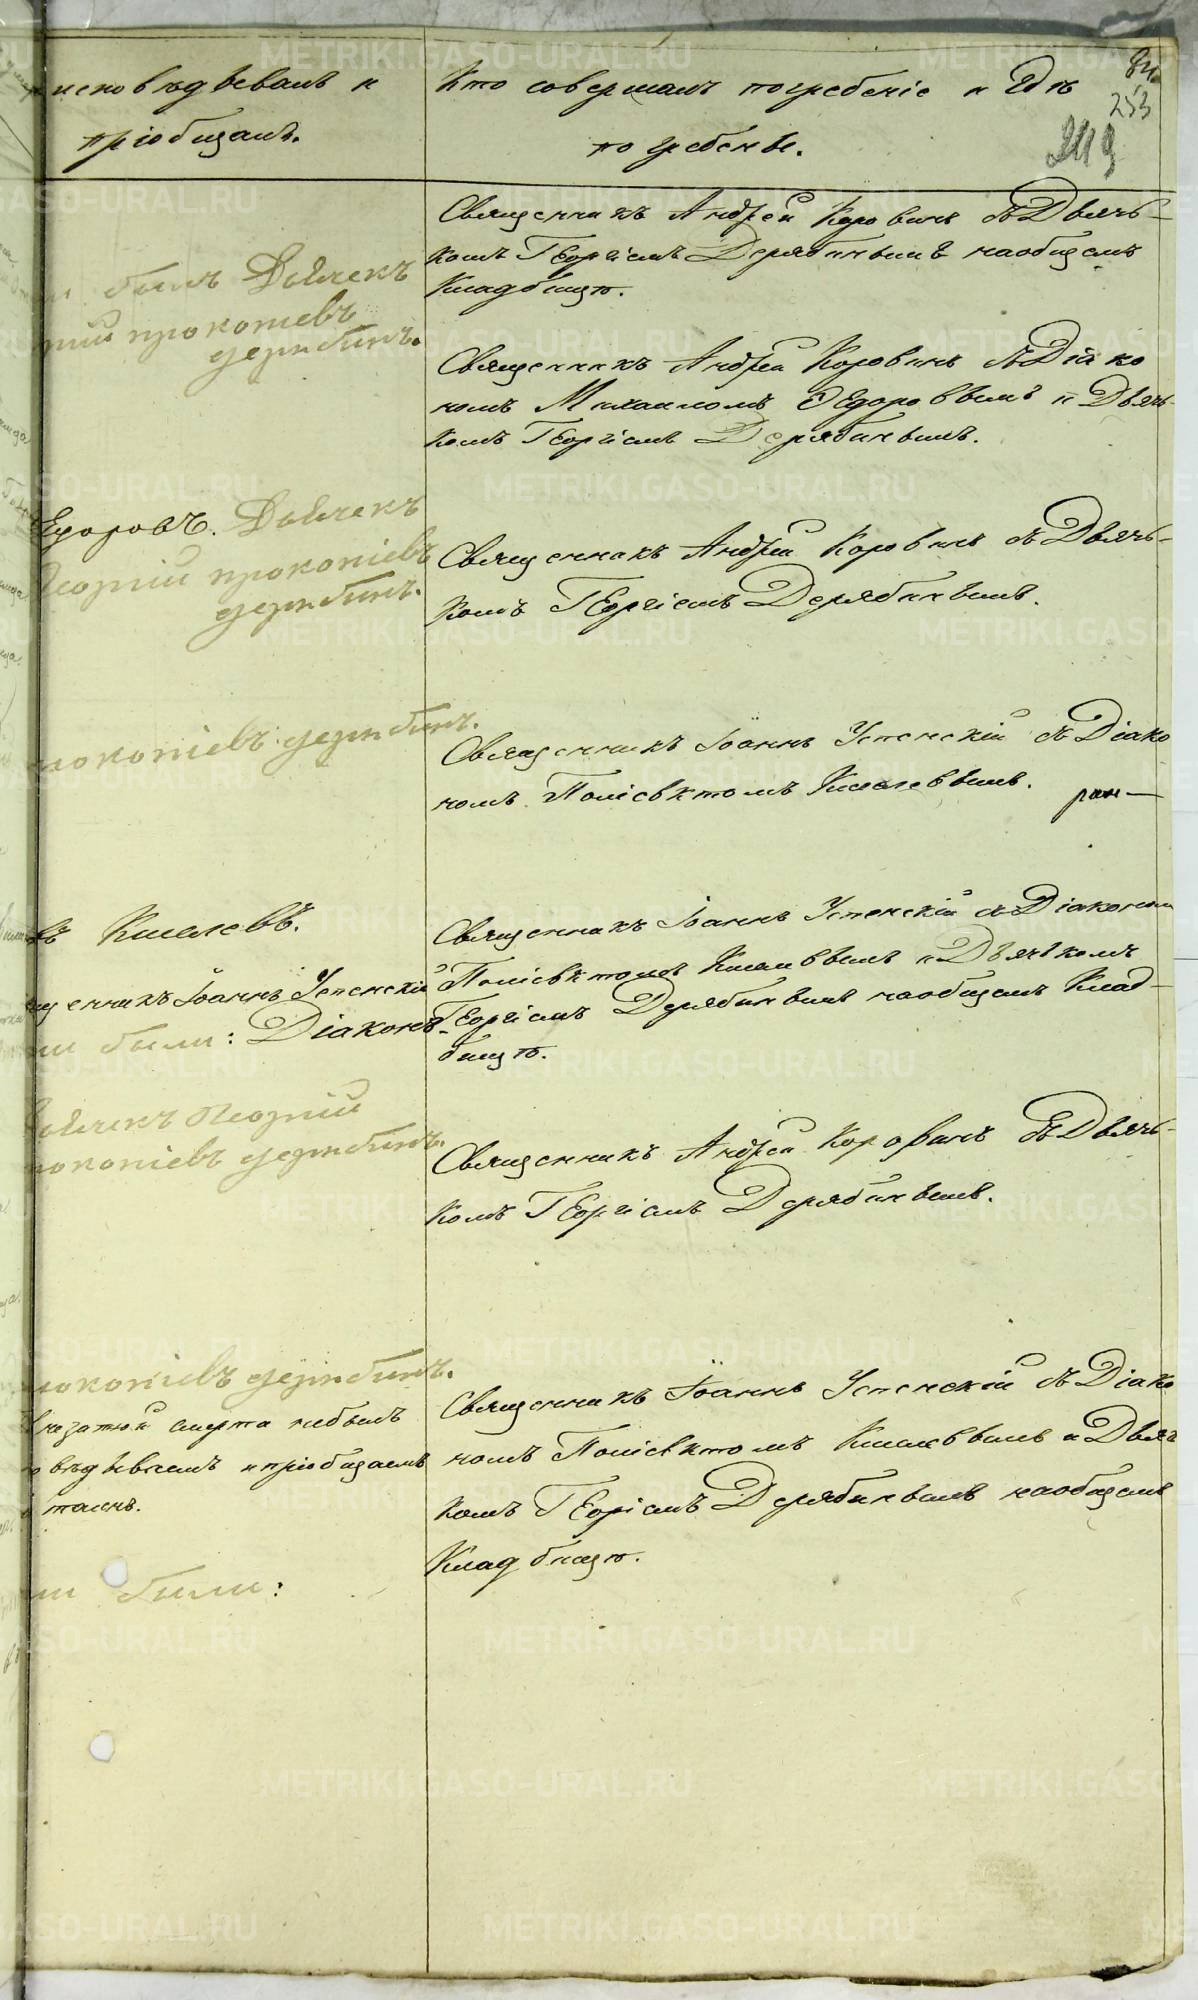 исповѣдывалъ и
пріобщалъ.
Кто совершалъ погребеніе и гдѣ
погребены.
253
249
Священникъ Андрей Коровинъ съ Дьячь-
комъ Георгіемъ Дерябинымъ на общемъ
Кладбищѣ.
былъ Дьячекъ
прокопіевъ
дерябинъ.
Священникъ Андрей Коровинъ съ Діако
номъ Михаиломъ Ѳедоровымъ и Дьячь-
комъ Георгіемъ Дерябинымъ.
Егоровъ. Дьячекъ
Георгій прокопіевъ
дерябинъ.
Священникъ Андрей Коровинъ съ Дьячь-
комъ Георгіемъ Дерябинымъ.
рокопіевъ дерябинъ.
Священникъ Іоаннъ Успенскій съ Діако
номъ Поліевктомъ Киселевымъ.
въ Киселевъ.
щенникъ Іоаннъ Успенскій
ми были: Діаконъ
Священникъ Іоаннъ Успенскій съ Діакономъ
Поліевктомъ Киселевымъ и Дьячкомъ
Георгіемъ Дерябинымъ на общемъ Клад-
бищѣ.
Дьячекъ Георгій
рокопіевъ дерябинъ.
Священникъ Андрей Коровинъ съ Дьячь-
комъ Георгіемъ Дерябинымъ.
рокопіевъ дерябинъ.
внезапной смерти небылъ
овѣдываемъ и пріобщаемъ
таинъ.
ми были:
Священникъ Іоаннъ Успенскій съ Діако
номъ Поліевктомъ Киселевымъ и Дьяч
комъ Георгіемъ Дерябинымъ на общемъ
Кладбищѣ.
METRIKI.GASO-URAL.RU